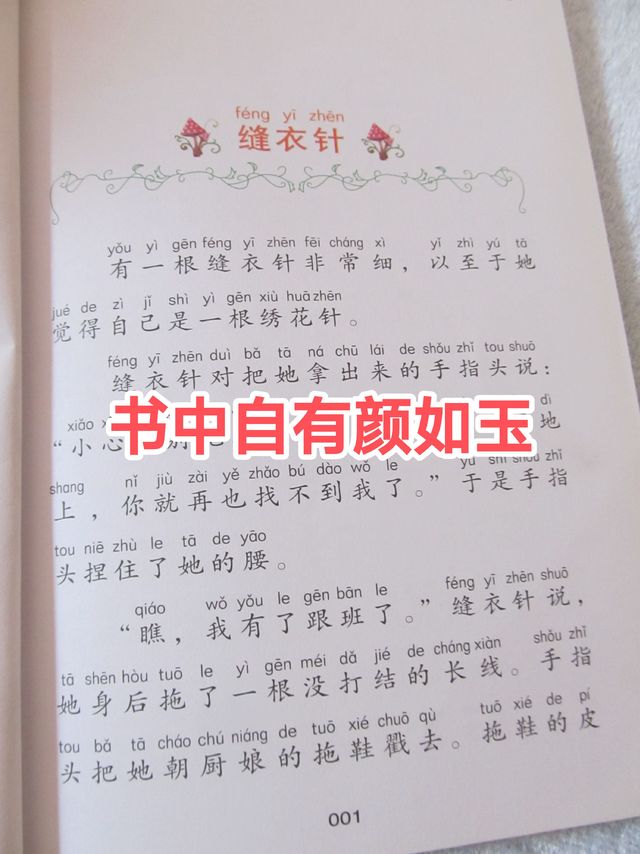 féng yī zhēn
缝衣针
yǒu yì gēn féng yī zhēn fēi cháng xì yǐ zhì yú tā
有一根缝衣针非常细，以至于她
jué de zì jǐ shì yì gēn xiù huā zhēn
觉得自己是一根绣花针。
féng yī zhēn duì bǎ tā ná chū lái de shǒu zhǐ tou shuō
缝衣针对把她拿出来的手指头说：
xiǎo dì
“小心 地
书中自有颜如玉
shang nǐ jiù zài yě zhǎo bú dào wǒ le yú shì shǒu zhǐ
上，你就再也找不到我了。”于是手指
tou niē zhù le tā de yāo
头捏住了她的腰。
qiáo wǒ yǒu le gēn bān le féng yī zhēn shuō
“瞧，我有了跟班了。”缝衣针说，
tā shēn hòu tuō le yì gēn méi dǎ jié de cháng xiàn shǒu zhǐ
她身后拖了一根没打结的长线。手指
tou bǎ tā cháo chú niáng de tuō xié chuō qù tuō xié de pí
头把她朝厨娘的拖鞋戳去。拖鞋的皮
001